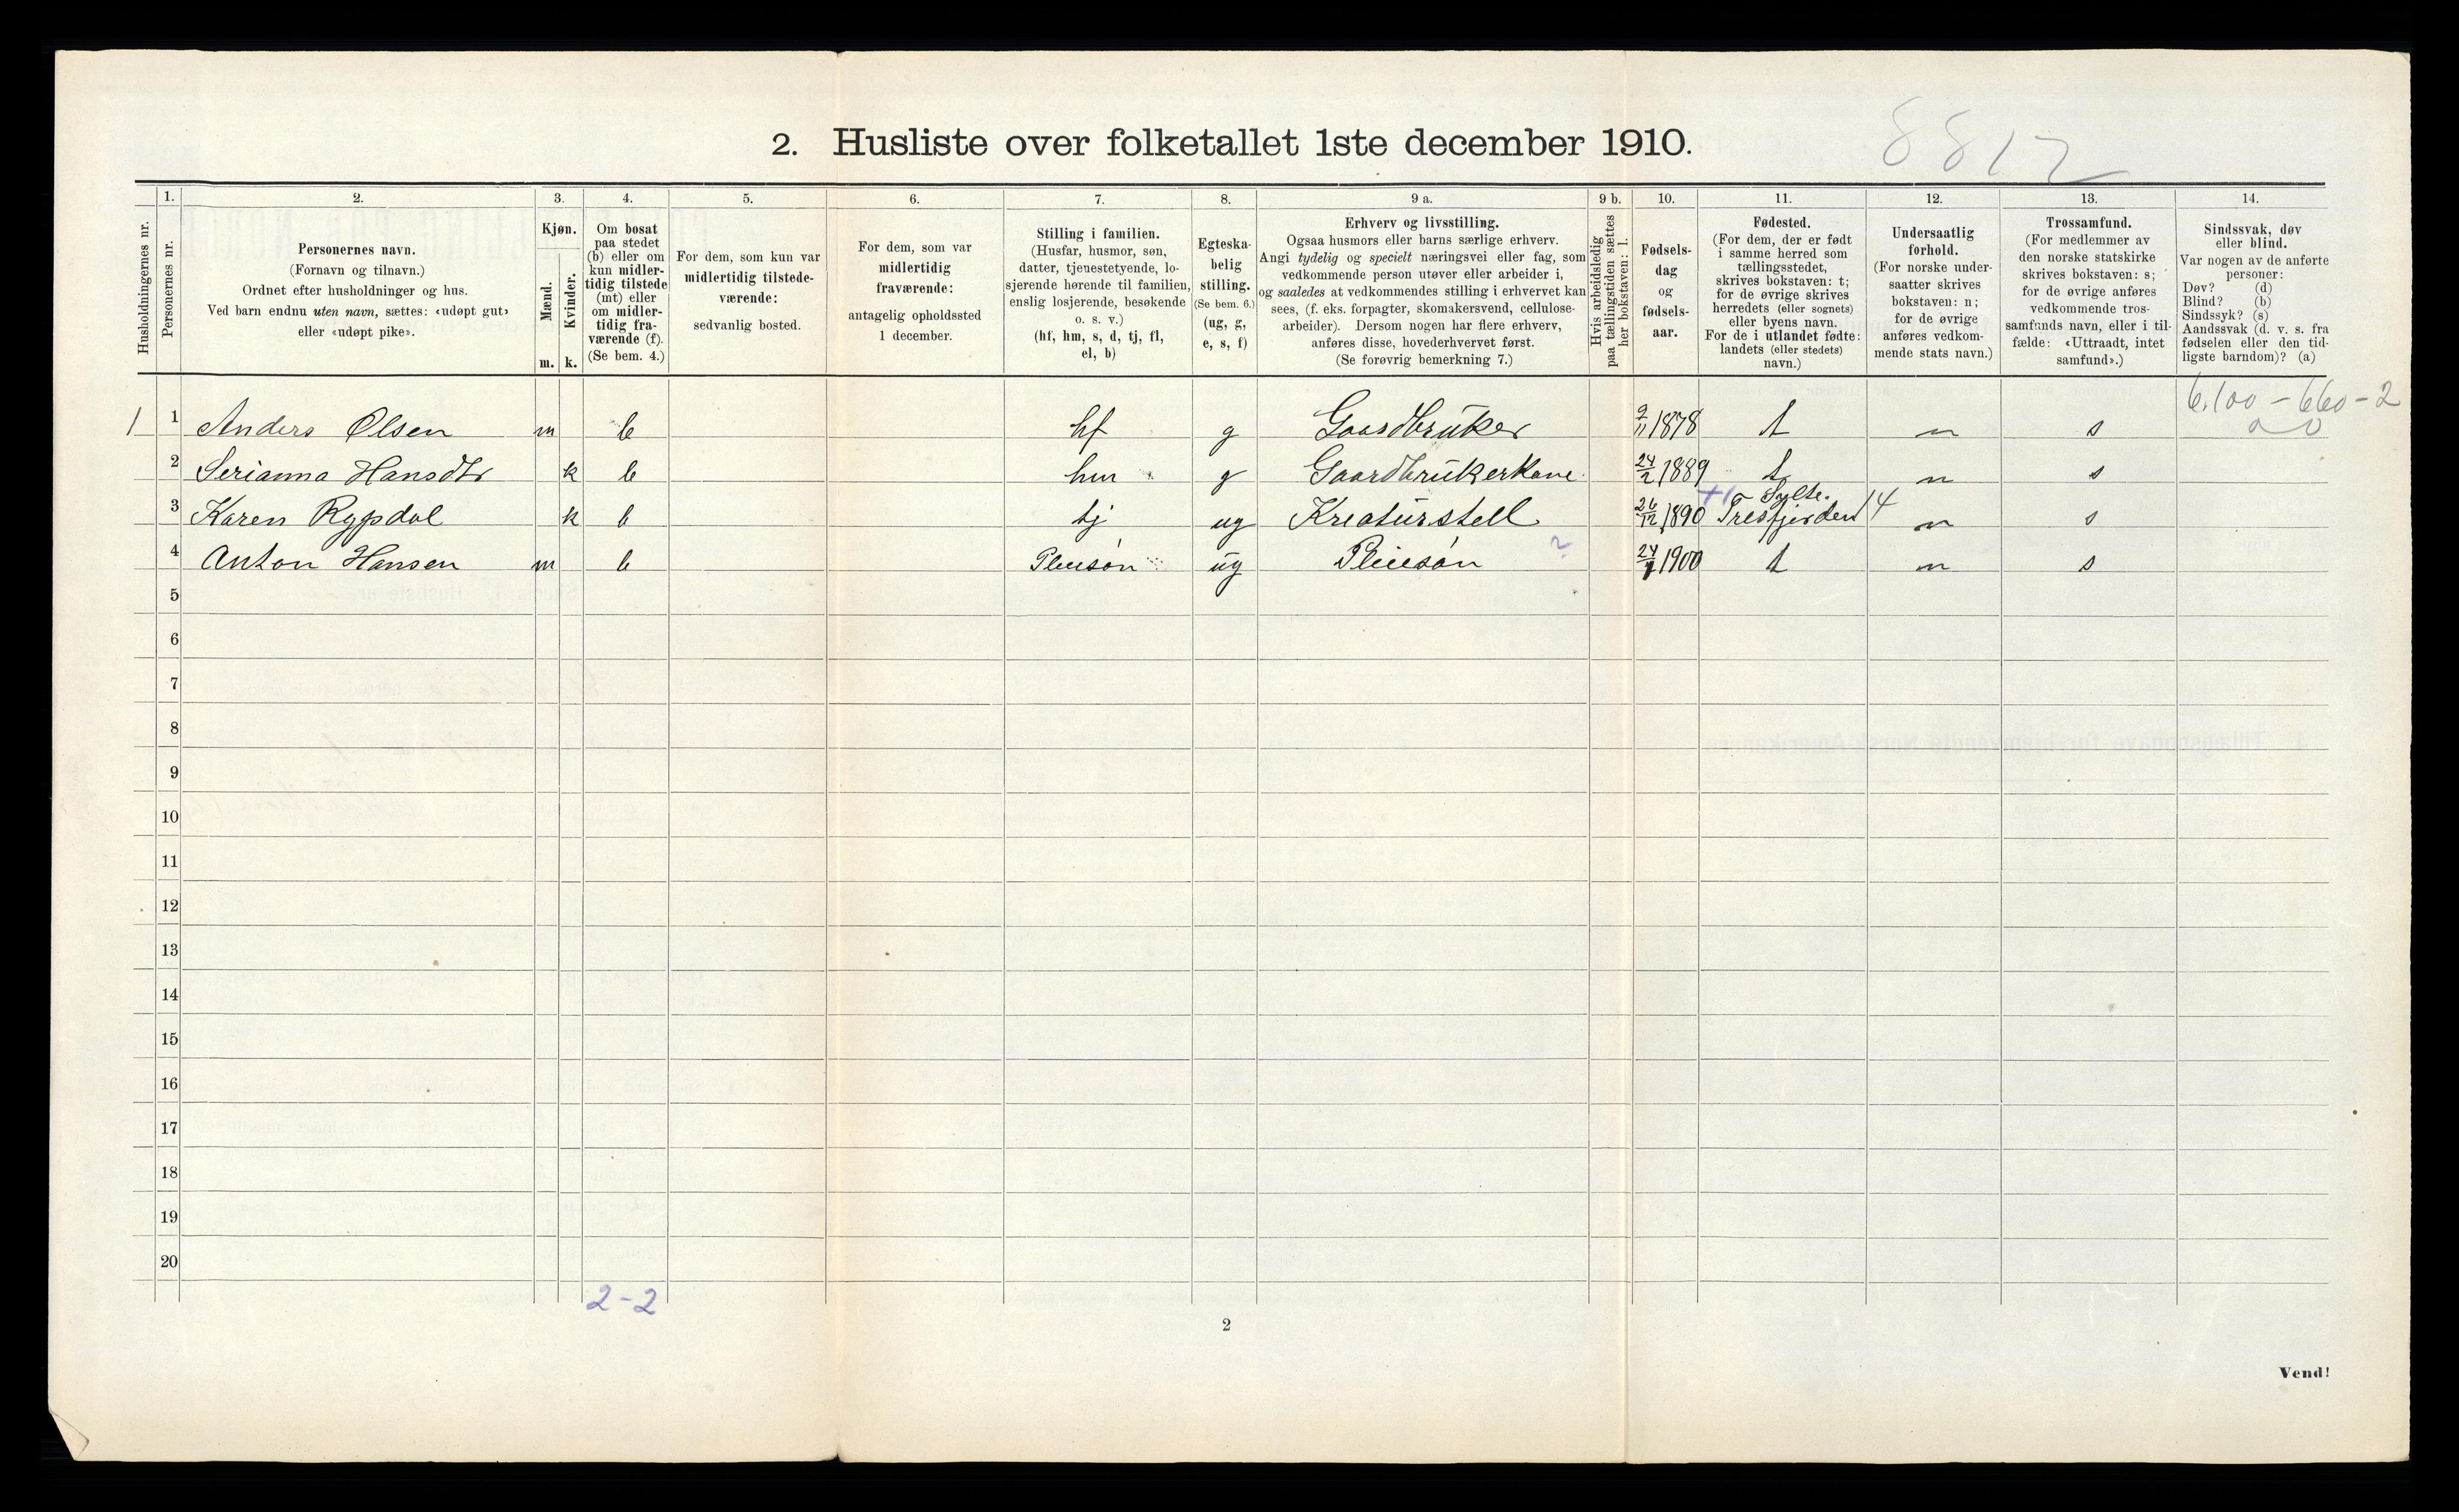 8812
2. Husliste over folketallet 1ste december 1910.
Husholdningernes nr.
1.
Personernes nr.
2.
Personernes navn.
(Fornavn og tilnavn.)
Ordnet efter husholdninger og hus.
Ved barn endnu uten navn, sættes: «udøpt gut»
eller «udøpt pike».
3.
Kjøn.
Mænd.
Kvinder.
m. k.
4.
Om bosat
paa stedet
(b) eller om
kun midler-
tidig tilstede
(mt) eller
om midler-
tidig fra-
værende (f).
(Se bem. 4.)
5.
For dem, som kun var
midlertidig tilstede-
værende:
sedvanlig bosted.
6.
For dem, som var
midlertidig
fraværende:
antagelig opholdssted
1 december.
7.
Stilling i familien.
(Husfar, husmor, søn,
datter, tjenestetyende, lo-
sjerende hørende til familien,
enslig losjerende, besøkende
o. s. v.)
(hf, hm, s, d, tj, fl,
el, b)
8.
Egteska-
belig
stilling.
(Se bem. 6.)
(ug, g,
e, s, f)
9 a.
Erhverv og livsstilling.
Ogsaa husmors eller barns særlige erhverv.
Angi tydelig og specielt næringsvei eller fag, som
vedkommende person utøver eller arbeider i,
og saaledes at vedkommendes stilling i erhvervet kan
sees, (f. eks. forpagter, skomakersvend, cellulose-
arbeider). Dersom nogen har flere erhverv,
anføres disse, hovederhvervet først.
(Se forøvrig bemerkning 7.)
9 b.
Hvis arbeidsledig
paa tællingstiden sættes
her bokstaven: l.
10.
Fødsels-
dag
og
fødsels-
aar.
11.
Fødested.
(For dem, der er født
i samme herred som
tællingsstedet,
skrives bokstaven: t;
for de øvrige skrives
herredets (eller sognets)
eller byens navn.
For de i utlandet fødte:
landets (eller stedets)
navn.)
12.
Undersaatlig
forhold.
(For norske under-
saatter skrives
bokstaven: n;
for de øvrige
anføres vedkom-
mende stats navn.)
13.
Trossamfund.
(For medlemmer av
den norske statskirke
skrives bokstaven: s;
for de øvrige anføres
vedkommende tros-
samfunds navn, eller i til-
fælde: «Uttraadt, intet
samfund».)
14.
Sindssvak, døv
eller blind.
Var nogen av de anførte
personer:
Døv? (d)
Blind? (b)
Sindssyk? (s)
Aandssvak (d. v. s. fra
fødselen eller den tid-
ligste barndom)? (a)
6.100 - 660 - 2
1 1 Anders Olsen m b hf g Gaardbruker 9/11 1878 t n s
2 Serianna Hansdtr k b hm g Gaardbrukerkone 24/2 1889 t n s
Sylte.
3 Karen Rypdal k b tj ug Kreaturstell 26/12 1890 Tresfjorden 14 n s
4 Anton Hansen m b Pleiesøn ug Pleiesøn ? 24/1 1900 t n s
5
6
7
8
9
10
11
12
13
14
15
16
17
18
19
20
2-2
2
Vend!